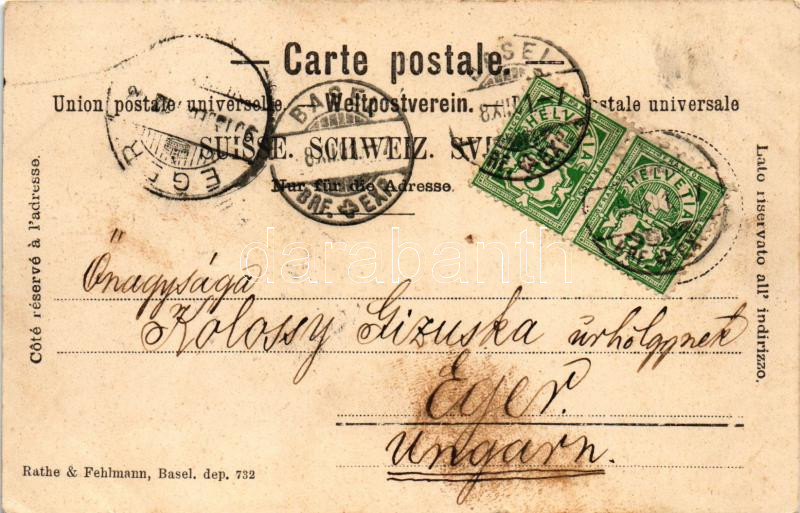 Carte postale.
Union postale universelle. — Weltpostverein. — Unione postale universale
SUISSE. SCHWEIZ. SVIZZERA.
Nur für die Adresse.
Côté réservé à l'adresse.
Lato riservato all' indirizzo.
EGER
BASEL
BRF. EXP.
BASEL
BRF. EXP.
HELVETIA
HELVETIA
5
Őnagysága
Kolossy Gizuska úrhölgynek
Eger.
Ungarn.
darabanth
Rathe & Fehlmann, Basel. dep. 732